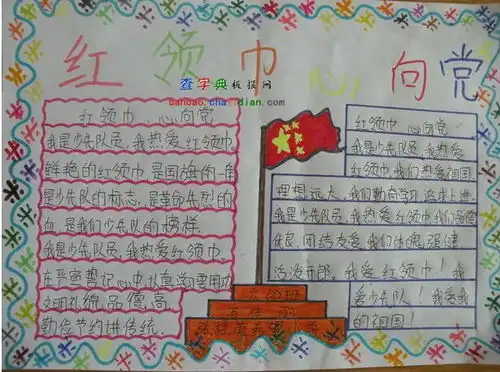 红领巾心向党
查字典板报网
banbao.chazidian.com
红领巾 心向党
我是少先队员,我热爱红领巾,
鲜艳的红领巾是国旗的一角
是少先队的标志,是革命先烈的
血,是我们少先队的榜样.
我是少先队员,我热爱红领巾.
在平 记心中,认真学习
文明礼 品德高
勤俭节约讲传统.
红领巾 心向党
我是少先队员,我热爱
红领巾,我们热爱祖国
理想远大,我们勤奋学习,追求上进.
我是少先队员,我热爱红领巾,我们品德
优良,团结友爱,我们体魄强健
活泼开朗.我爱红领巾!我
爱少先队!我爱我
的祖国!